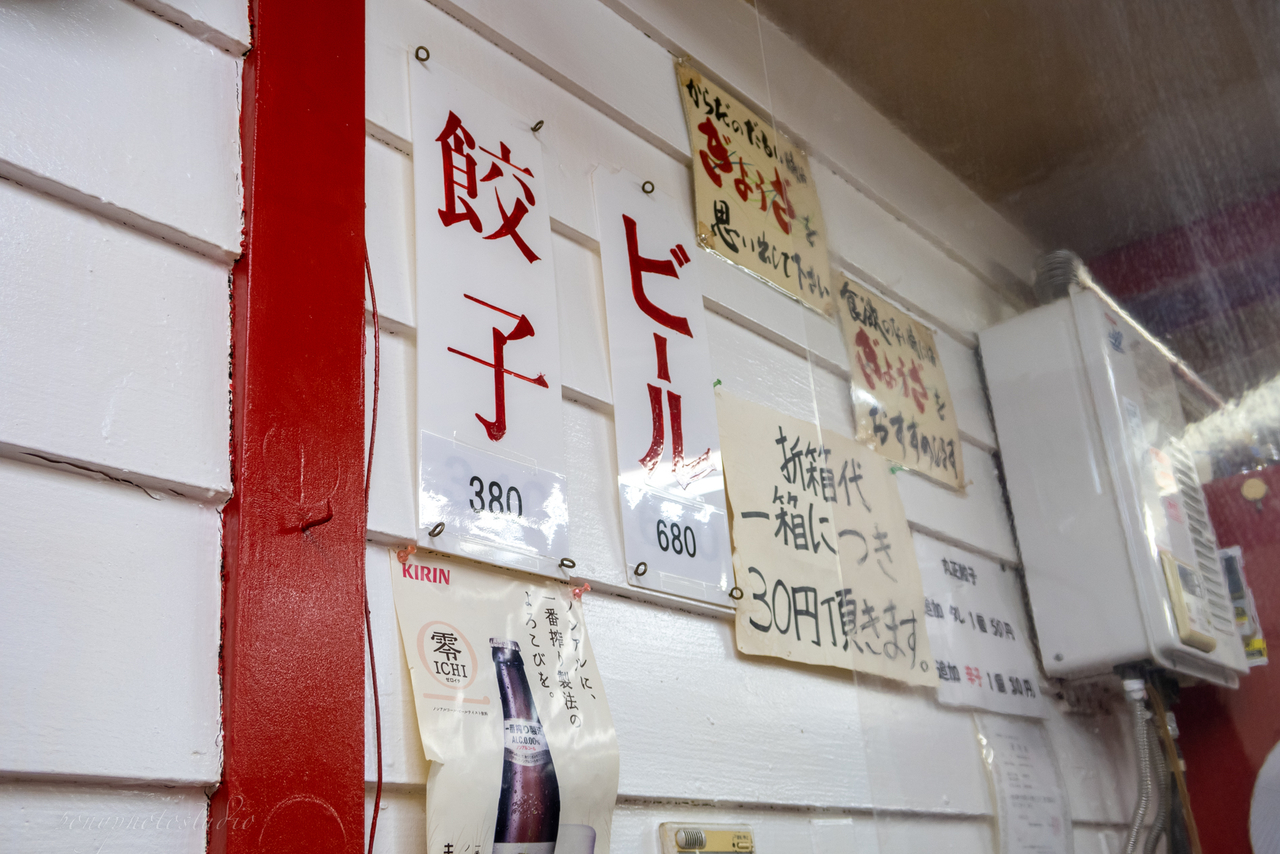 餃子
380
ビール
680
からだのだるい時は
ぎょうざを
思い出して下さい
食欲のない時には
ぎょうざを
おすすめします
折箱代
一箱につき
30円頂きます。
丸正餃子
追加 タレ 1個 50円
追加 辛子 1個 30円
KIRIN
零
ICHI
ゼロイチ
ノンアルに、
一番搾り製法の
よろこびを。
一番搾り製法
ALC.0.00%